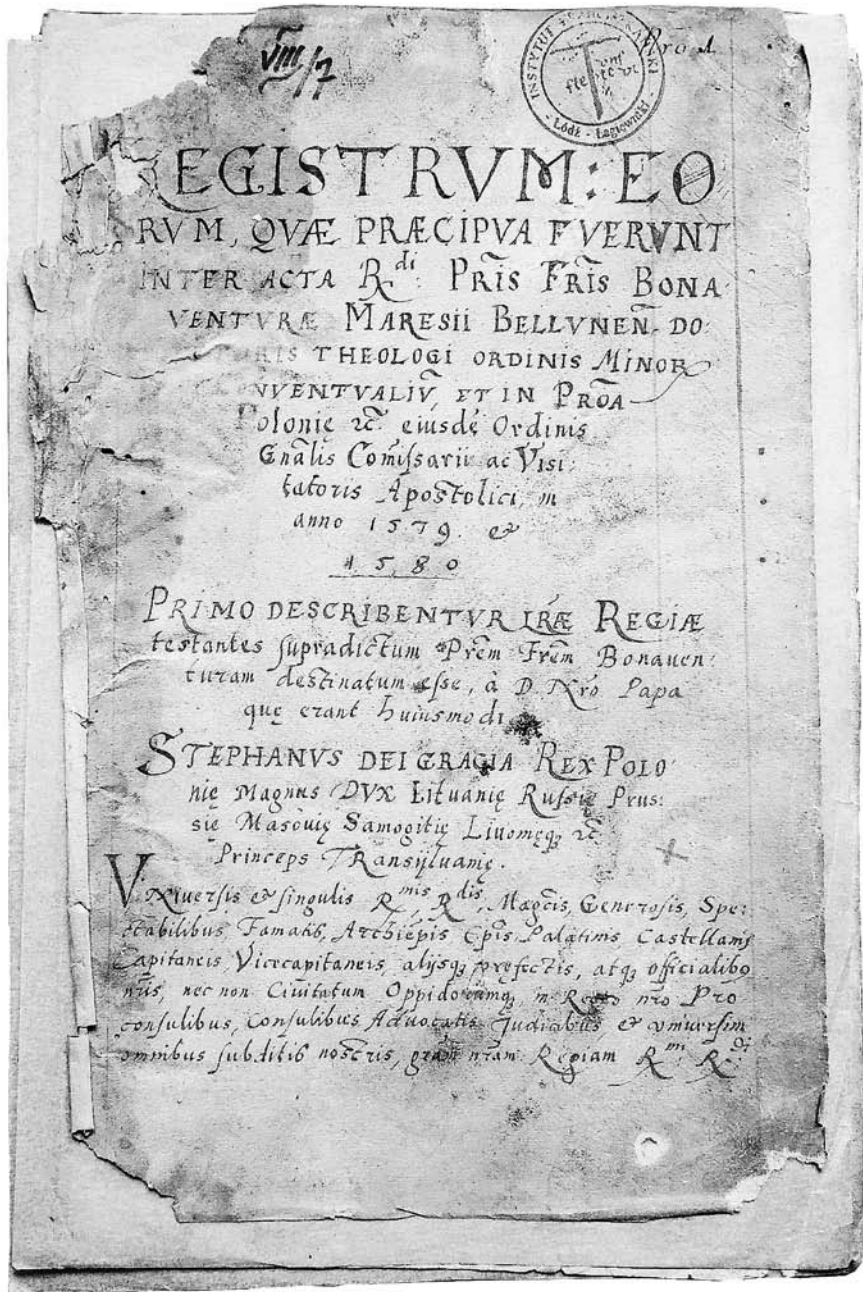 VIII/7
Nro 1
INSTYTUT FRANCISZKAŃSKI
Łódź - Łagiewniki
REGISTRVM: EO
RVM, QVÆ PRÆCIPVA FVERVNT
INTER ACTA R^di: Pr̃is Fr̃is BONA:
VENTVRÆ MARESII BELLVNEÑ. DO:
THEOLOGI ORDINIS MINOR
NVENTVALIṼ, ET IN PROÃ
Polonię &c̃. eiusdẽ Ordinis
Gñalis Com̃issarii ac Visi:
tatoris Apostolici, in
anno 1579. &
1580
PRIMO DESCRIBENTVR LR̃Æ REGIÆ
testantes supradictum Pr̃em Fr̃em Bonauen:
turam destinatum esse, à D. Nr̃o Papa
quę erant huiusmodi
STEPHANVS DEI GRACIA REX POLO:
nię Magnus DVX Lituanię Russię Prus:
się Masouię Samogitię Liuonięq, &c̃
Princeps TRansyluanię.
VNiuersis & singulis R^mis, R^dis, Magc̃is, Generosis, Spe:
ctabilibus Famatis, Archiep̃is Ep̃is, Palatinis, Castellanis
Capitaneis, Vicecapitaneis, alijsq, pręfectis, atq, officialibꝰ
nr̃is, nec non Ciuitatum Oppidorumq, in Regno nr̃o Pro
consulibus, Consulibus Aduocatis Judicibus, & vniuersim
omnibus subditis nostris, gram̃ nr̃am Regiam R^mi R^di